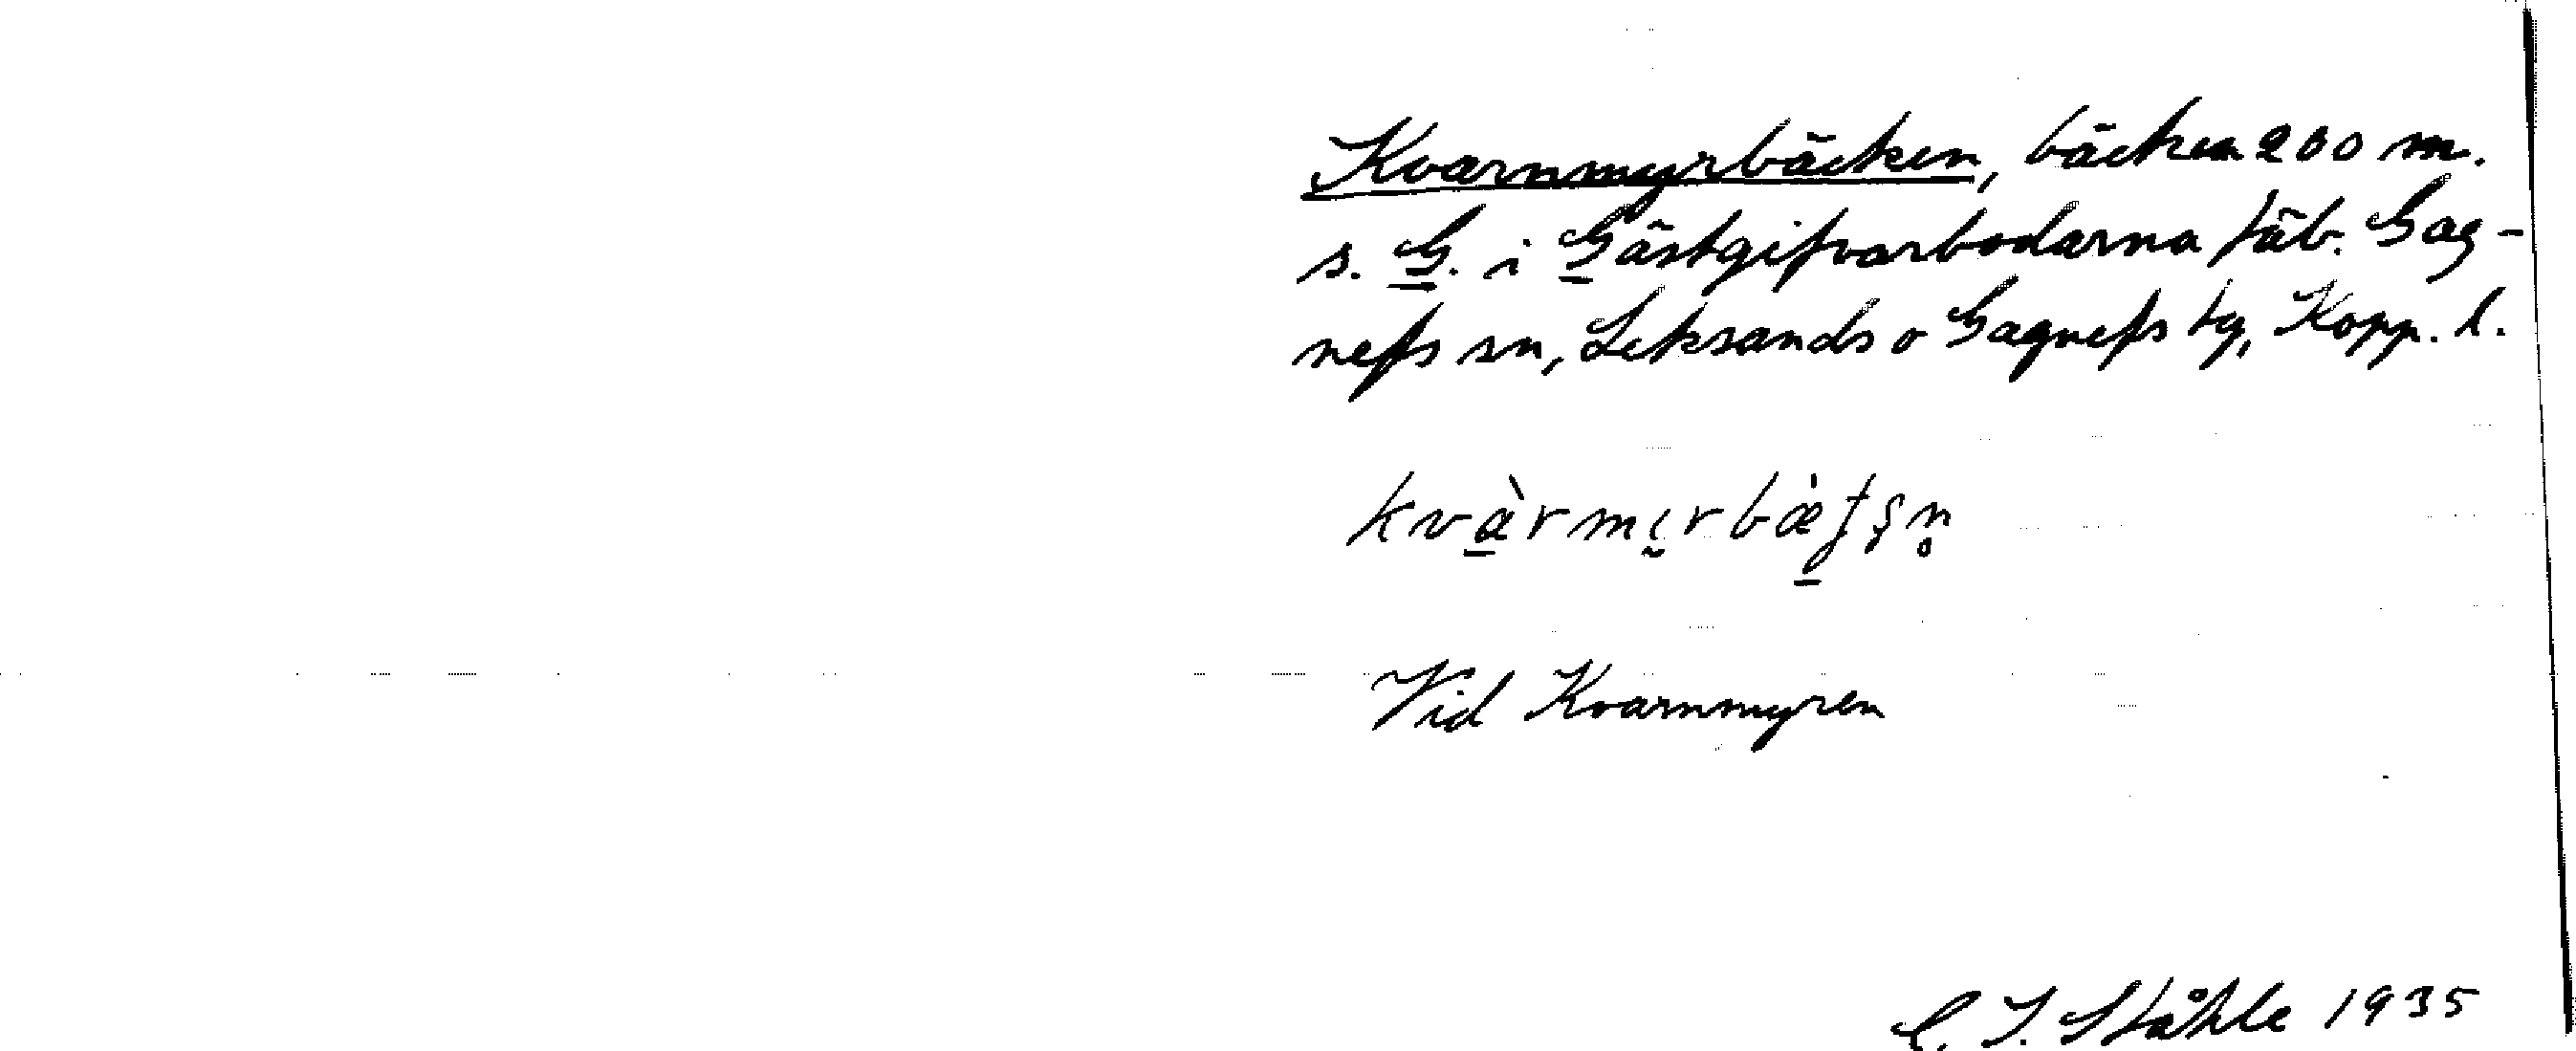 Kvarnmyrbäcken, bäcken 200 m.
s. G. i Gästgifvarbodarna fäb. Gag-
nefs sn, Leksands o Gagnefs tg, Kopp. l.
Vid Kvarnmyren
C. I. Ståhle 1935